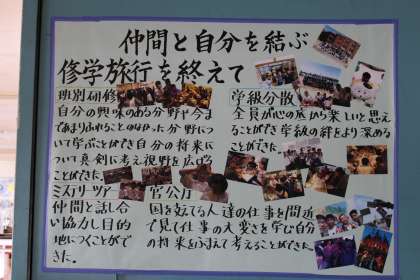 仲間と自分を結ぶ
修学旅行を終えて
班別研修
自分の興味のある分野や今ま
であまりふれることのなかった分野につ
いて学ぶことができ自分の将来に
ついて真剣に考え視野を広げる
ことができた。
ミステリーツアー
仲間と話し合
い協力し目的
地につくことがで
きた。
官公庁
国を支えてる人達の仕事を間近
で見て仕事の大変さを学び自分
の将来をふまえて考えることができた。
学級分散
全員が心の底から楽しいと思え
ることができ学級の絆をより深める
ことができた。